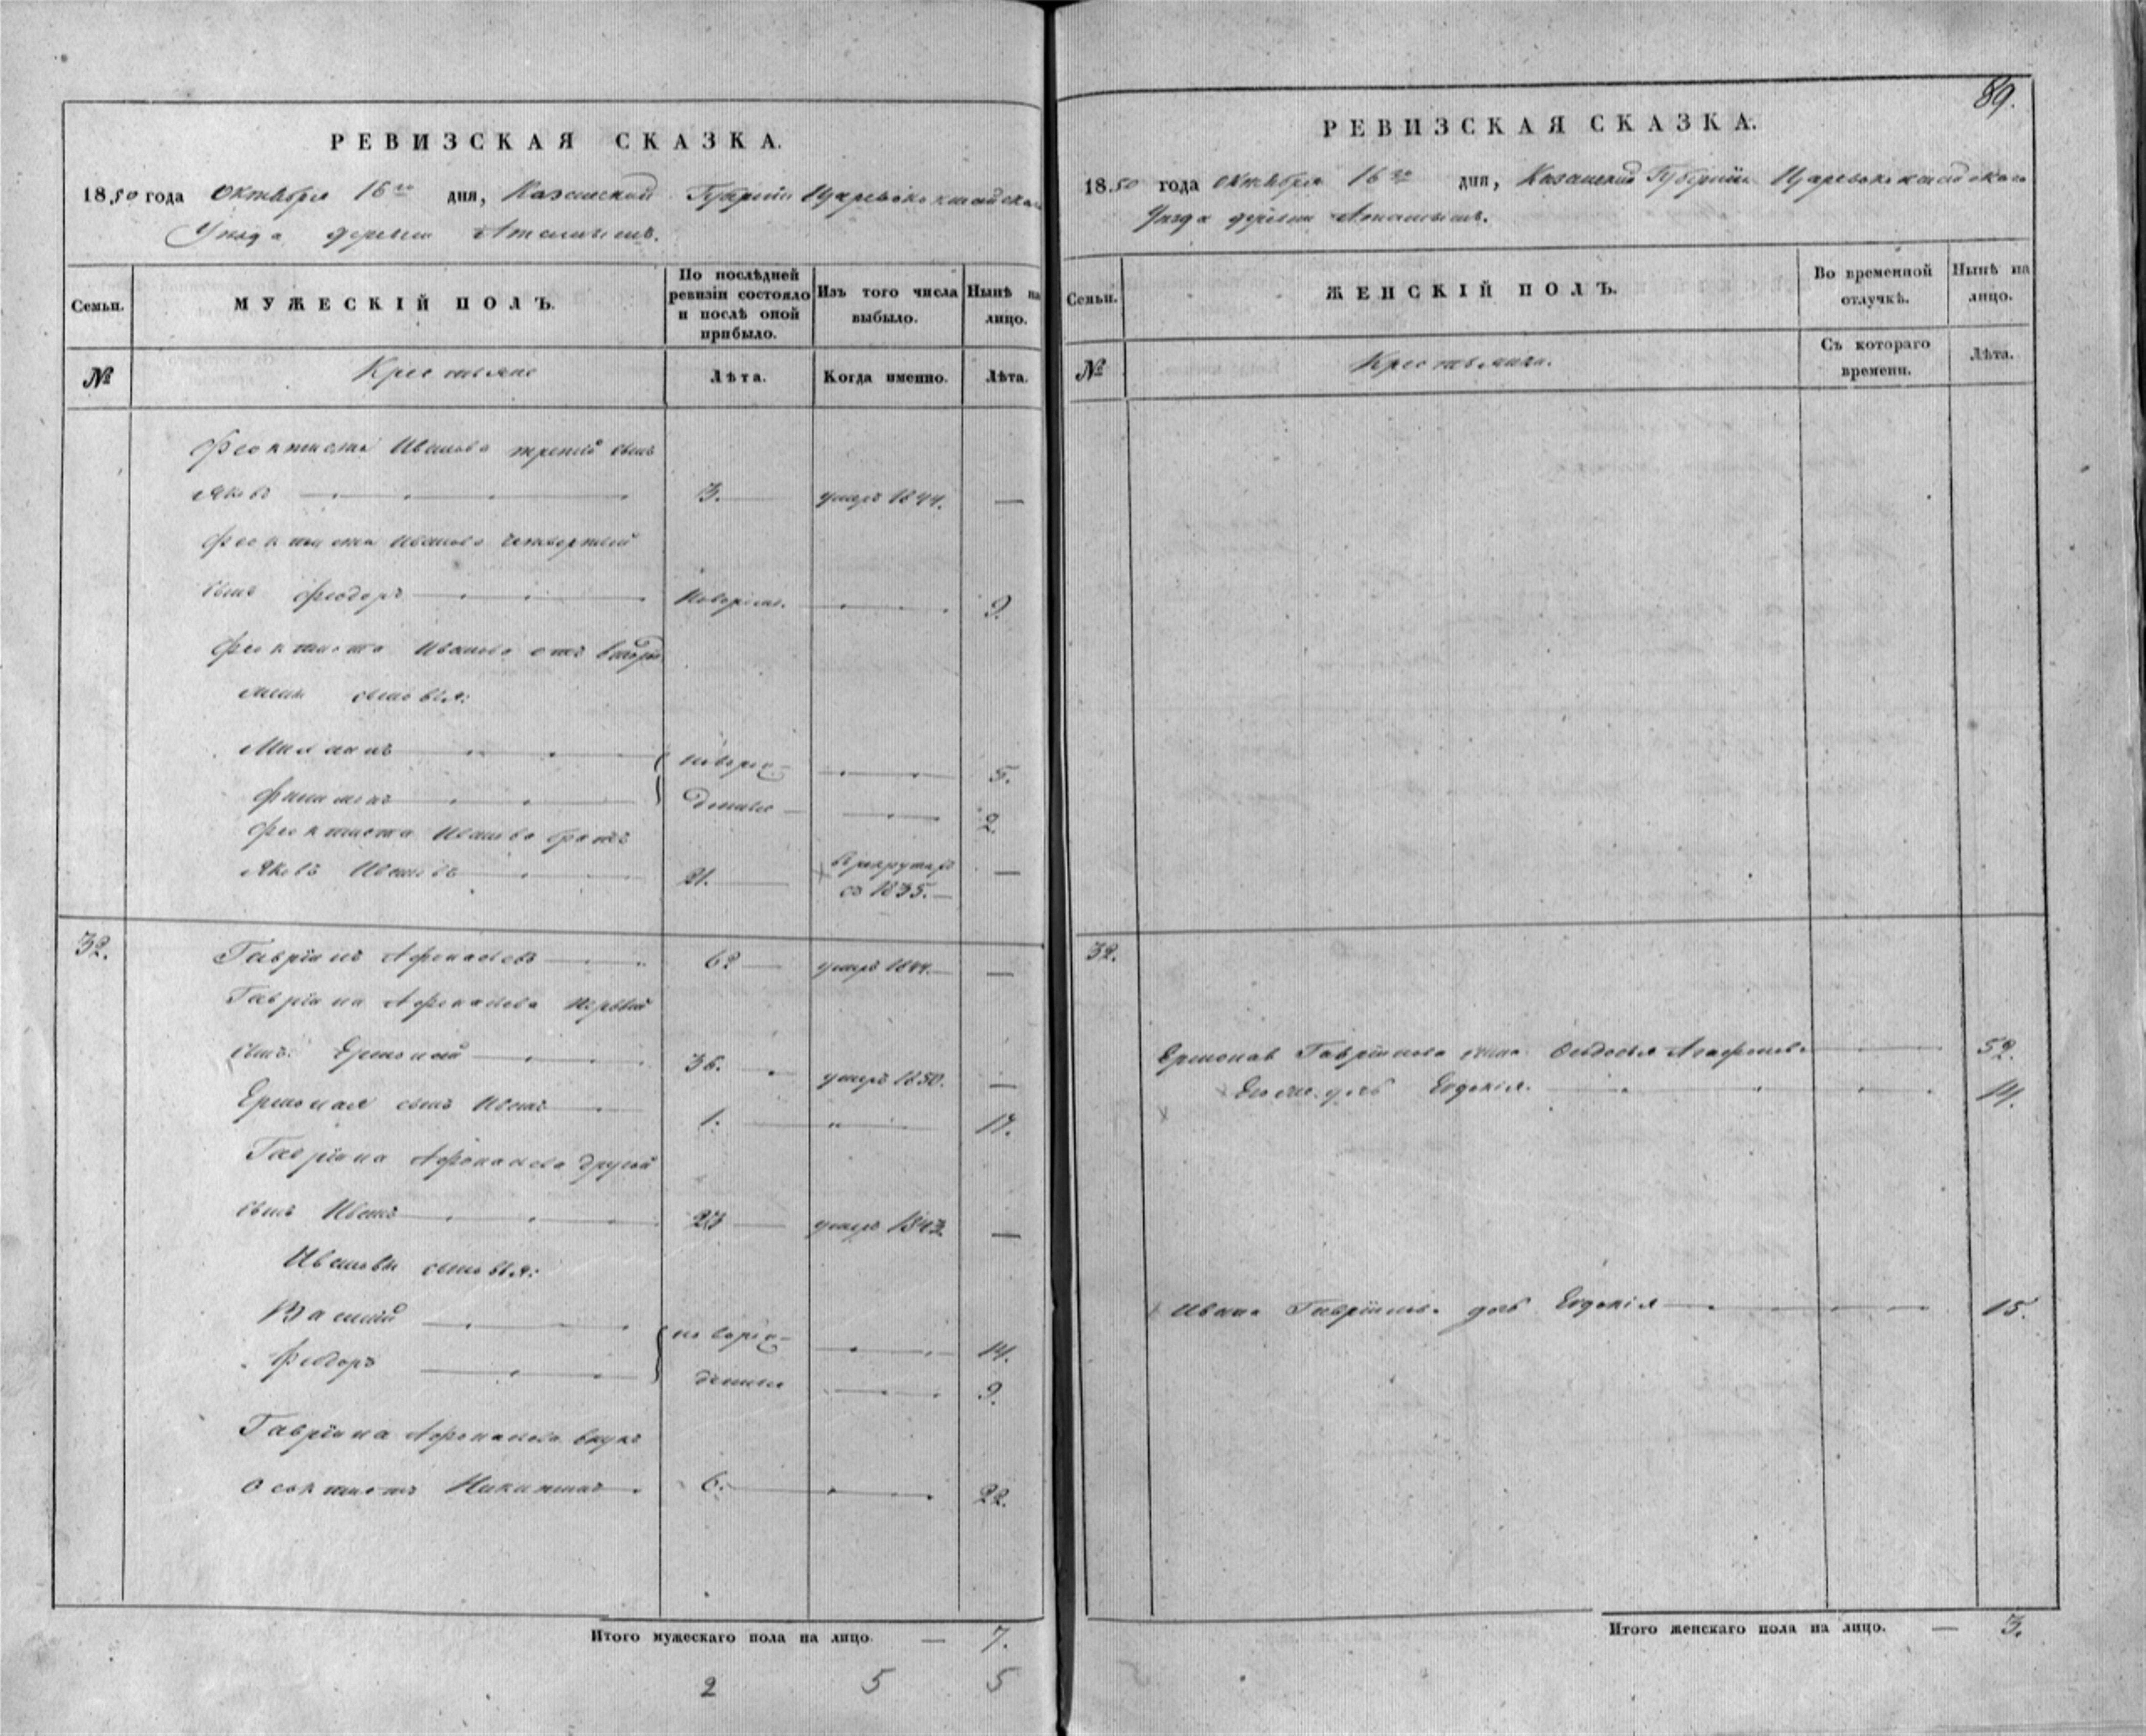 РЕВИЗСКАЯ СКАЗКА.
1850 года Октября 16го дня, Казанской Губерніи Царевококшайскаго
Уезда деревни
Семьи.
МУЖЕСКІЙ ПОЛЪ.
По послѣдней ревизіи состояло и послѣ оной прибыло.
Изъ того числа выбыло.
Нынѣ на лицо.
№
Крестьяне
Лѣта.
Когда именно.
Лѣта.
Феоктиста Иванова третій сынъ
Яковъ 3. умеръ 1844. —
Феоктиста Иванова четвертый
сынъ Феодоръ новорожд. 9.
Феоктиста Иванова отъ второй
жены сыновья:
новорож- 5.
Филимонъ денные 2.
Феоктиста Иванова братъ
Яковъ Ивановъ 21. в рекрутахъ
съ 1835. —
32. Гавріилъ Афонасьевъ 62 умеръ 1844. —
Гавріила Афонасьева первый
сынъ Ермолай 36. умеръ 1850. —
Ермолая сынъ Иванъ 1. 17.
Гавріила Афонасьева другой
сынъ Иванъ 23 умеръ 1843. —
Ивановы сыновья:
Василій новорож- 14.
Феодоръ денные 9.
Гавріила Афонасьева внукъ
Феоктистъ Никитинъ 6. 22.
Итого мужескаго пола на лицо. — 7.
2 5 5
89.
РЕВИЗСКАЯ СКАЗКА.
1850 года Октября 16го дня, Казанской Губерніи Царевококшайскаго
Уезда деревни
Семьи.
ЖЕНСКІЙ ПОЛЪ.
Во временной отлучкѣ.
Нынѣ на лицо.
№
Крестьянки.
Съ котораго времени.
Лѣта.
32.
Ермолая Гаврилова жена Федосья Агафонова 52.
Ево же дочь Евдокія. 14.
Ивана Гаврилова дочь Евдокія 15.
Итого женскаго пола на лицо. — 3.